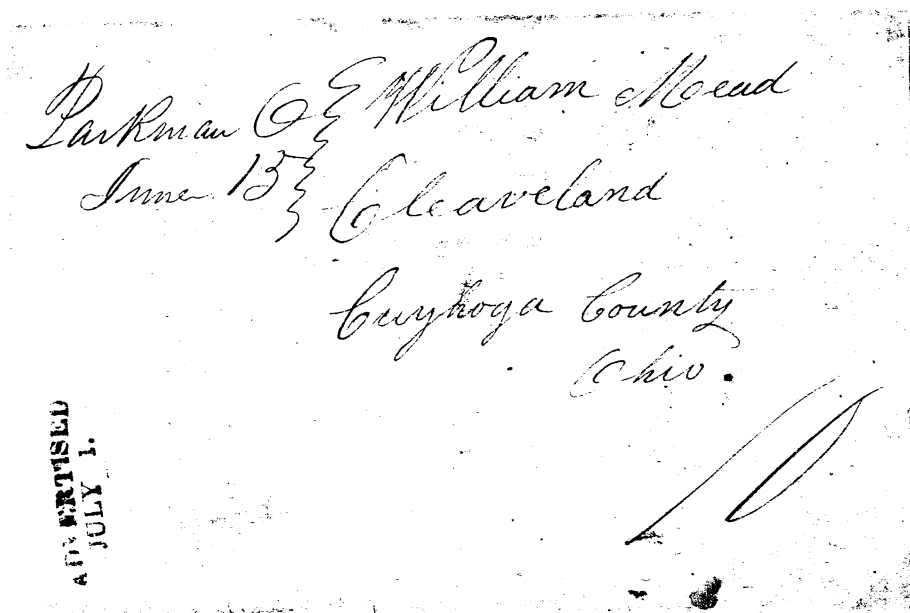 Parkman O
June 15
William Mead
Cleaveland
Cuyhoga County
Ohio.
10
ADVERTISED
JULY 1.